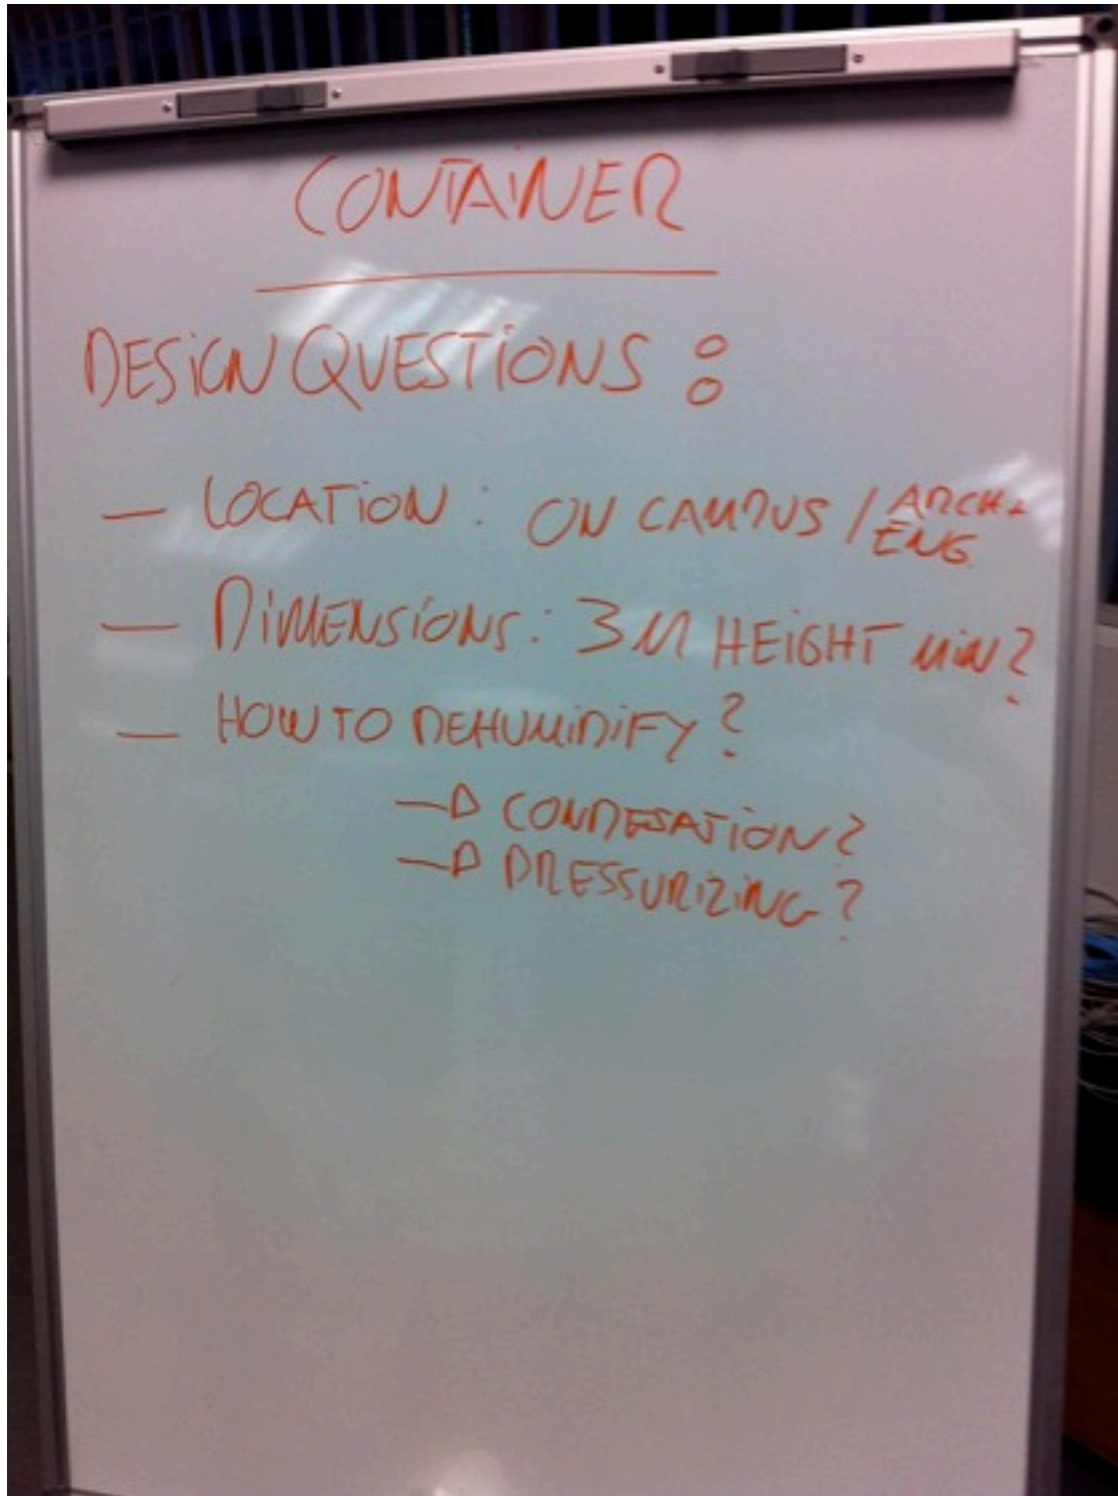 CONTAINER
DESIGN QUESTIONS :
— LOCATION : ON CAMPUS / ARCH+
ENG
— DIMENSIONS : 3M HEIGHT MIN?
— HOW TO DEHUMIDIFY ?
→ CONDESATION ?
→ PRESSURIZING ?